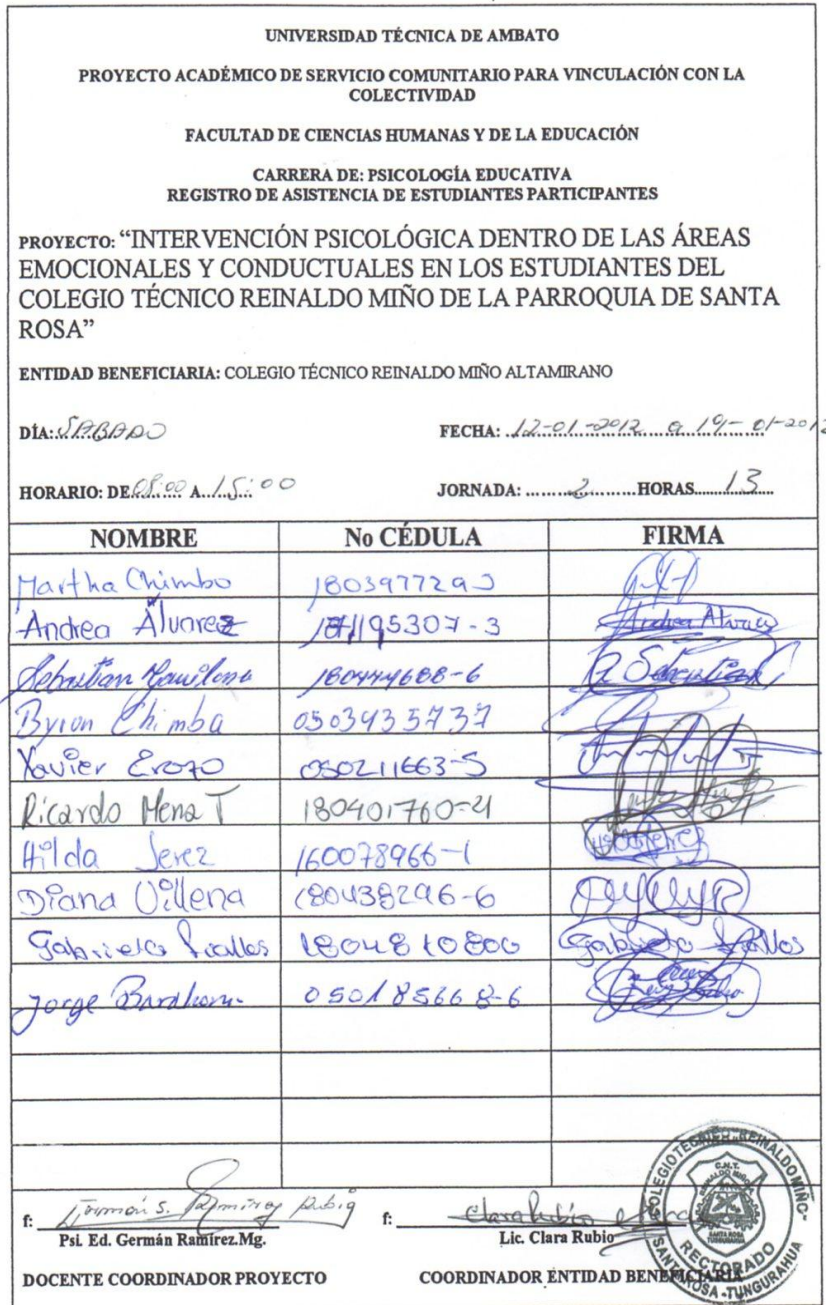 UNIVERSIDAD TÉCNICA DE AMBATO
PROYECTO ACADÉMICO DE SERVICIO COMUNITARIO PARA VINCULACIÓN CON LA
COLECTIVIDAD
FACULTAD DE CIENCIAS HUMANAS Y DE LA EDUCACIÓN
CARRERA DE: PSICOLOGÍA EDUCATIVA
REGISTRO DE ASISTENCIA DE ESTUDIANTES PARTICIPANTES
PROYECTO: “INTERVENCIÓN PSICOLÓGICA DENTRO DE LAS ÁREAS
EMOCIONALES Y CONDUCTUALES EN LOS ESTUDIANTES DEL
COLEGIO TÉCNICO REINALDO MIÑO DE LA PARROQUIA DE SANTA
ROSA”
ENTIDAD BENEFICIARIA: COLEGIO TÉCNICO REINALDO MIÑO ALTAMIRANO
DÍA: SABADO FECHA: 12-01-2012 a 19-01-2012
HORARIO: DE 08:00 A 15:00 JORNADA: 2 HORAS 13
NOMBRE No CÉDULA FIRMA
Martha Chimbo
Andrea Álvarez Andrea Alvarez
Sebastian 180444688-6 Sebastian
Byron Chimba 0503435737
Xavier Erazo 050211663-5
Ricardo Mena T
Hilda Jerez 160078966-1
Diana Villena 180438296-6
Gabriela 1804810800 Gabriela
Jorge 050185668-6
f: f: Clara Rubio
Psi. Ed. Germán Ramírez.Mg. Lic. Clara Rubio
DOCENTE COORDINADOR PROYECTO COORDINADOR ENTIDAD BENEFICIARIA
COLEGIO TECNICO "REINALDO MIÑO"
SANTA ROSA
TUNGURAHUA
RECTORADO
SANTA ROSA - TUNGURAHUA